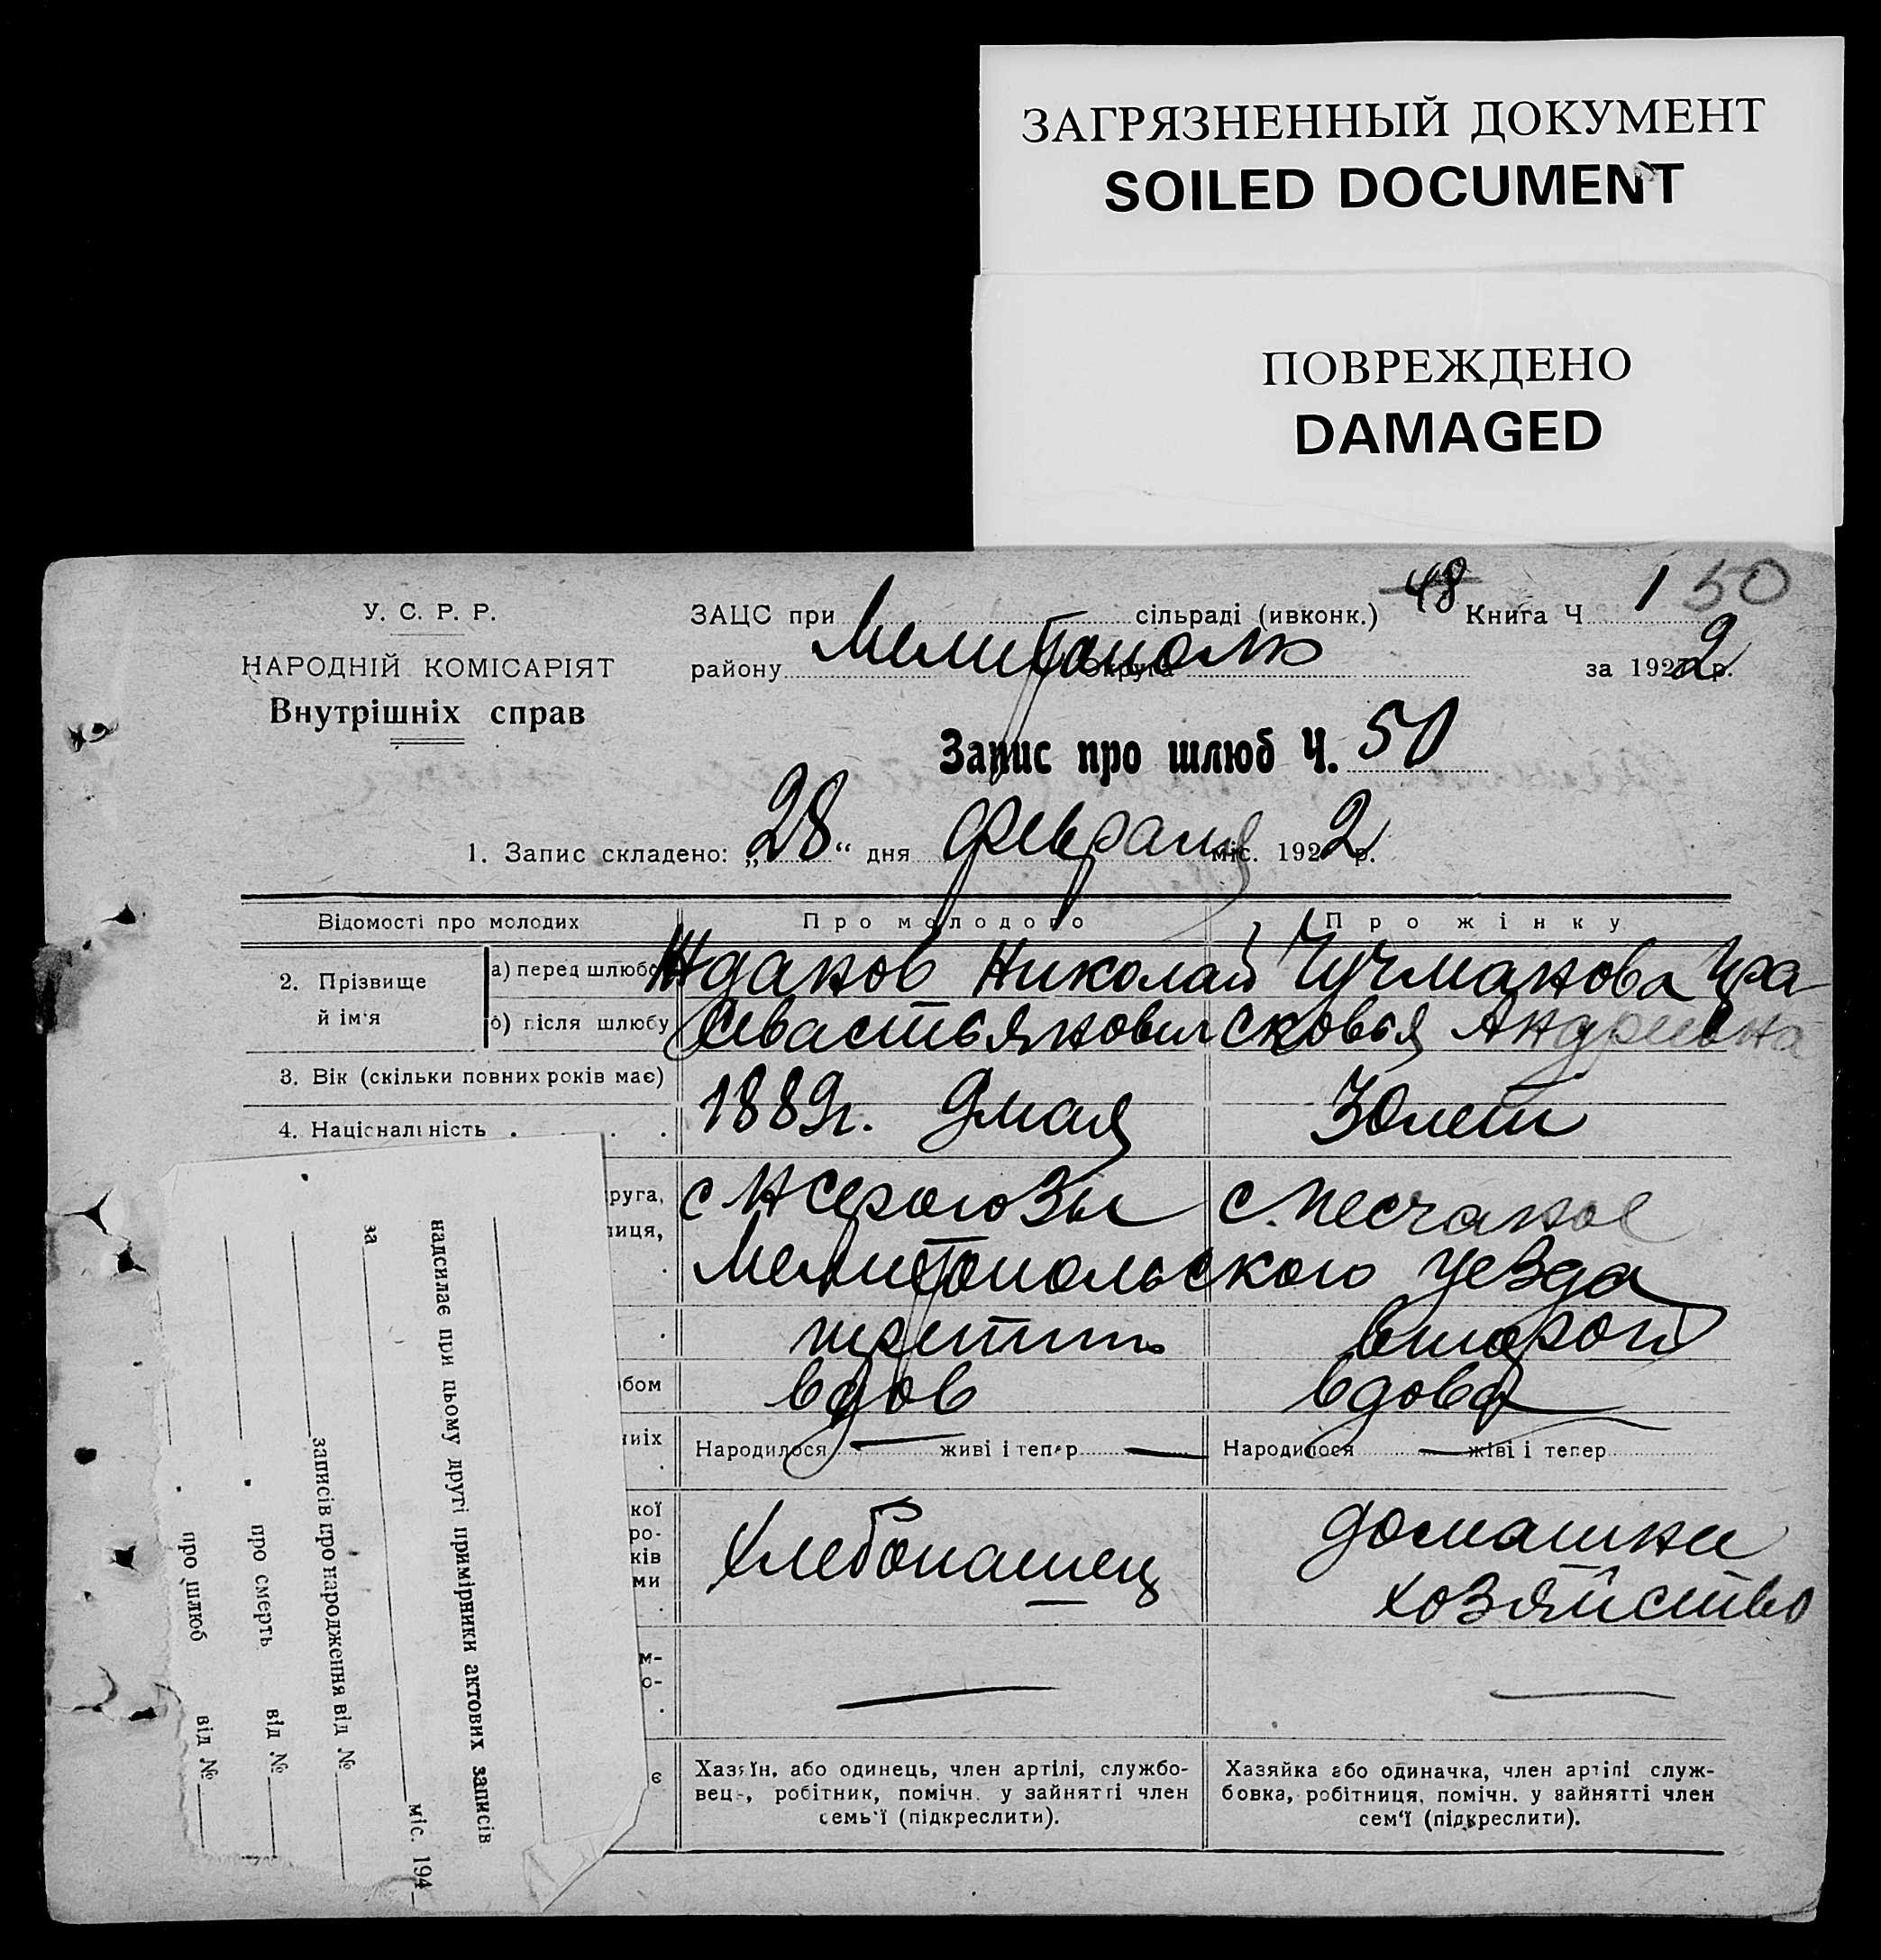 ЗАГРЯЗНЕННЫЙ ДОКУМЕНТ
SOILED DOCUMENT
ПОВРЕЖДЕНО
DAMAGED
У. С. Р. Р.
НАРОДНІЙ КОМІСАРІЯТ
Внутрішніх справ
ЗАЦС при сільраді (ивконк.) 48 Книга Ч 1 50
району Мелитополь Округа за 1922 р.
Запис про шлюб Ч. 50
1. Запис складено: „28“ дня февраля міс. 1922 р.
Відомості про молодих
Про молодого
Про жінку
2. Прізвище й ім'я
а) перед шлюбо
б) після шлюбу
Жданов Николай
Севастьянович
Чучманова
сковья Андреевна
3. Вік (скільки повних років має)
4. Національність
1889г. 9 мая
30 лет
руга,
иця,
с Н Серогозы
с. Песчаное
Мелитопольского уезда
третий
второй
бом
вдов
вдова
них
Народилося — живі і тепер —
Народилося — жіві і тепер
кої
ро-
ків
ми
Хлебопашец
домашнее
хозяйство
м-
о-
є
Хазяїн, або одинець, член артілі, службо-
вець, робітник, помічн. у зайнятті член
семь'ї (підкреслити).
Хазяйка або одиначка, член артілі служ-
бовка, робітниця, помічн. у зайнятті член
сем'ї (підкреслити).
надсилає при цьому другі примірники актових записів
за міс. 194
записів про народження від №
про смерть від №
про шлюб від №